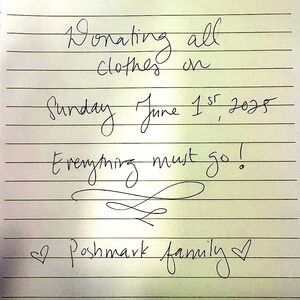 Donating all
clothes on
Sunday June 1st, 2025
Everything must go!
♡ Poshmark family ♡